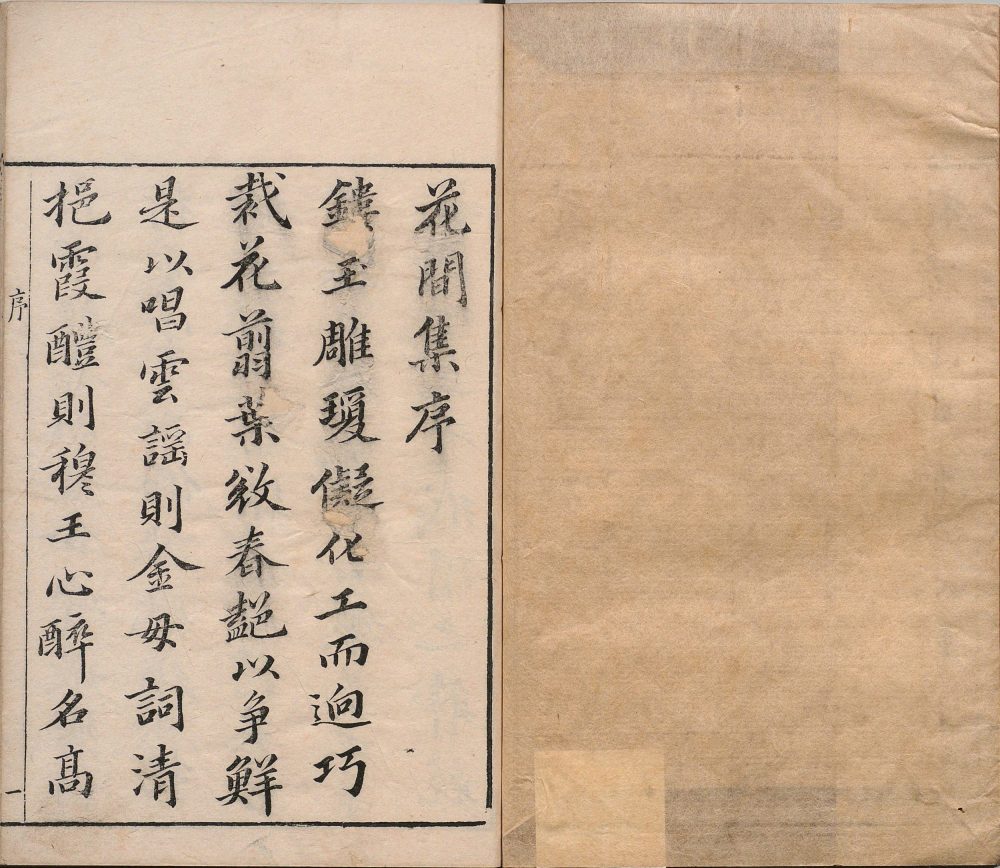 花間集序
鏤玉雕瓊儗化工而逈巧
裁花翦葉敚春艷以争鮮
是以唱雲謡則金母詞清
挹霞醴則穆王心醉名髙
序
一